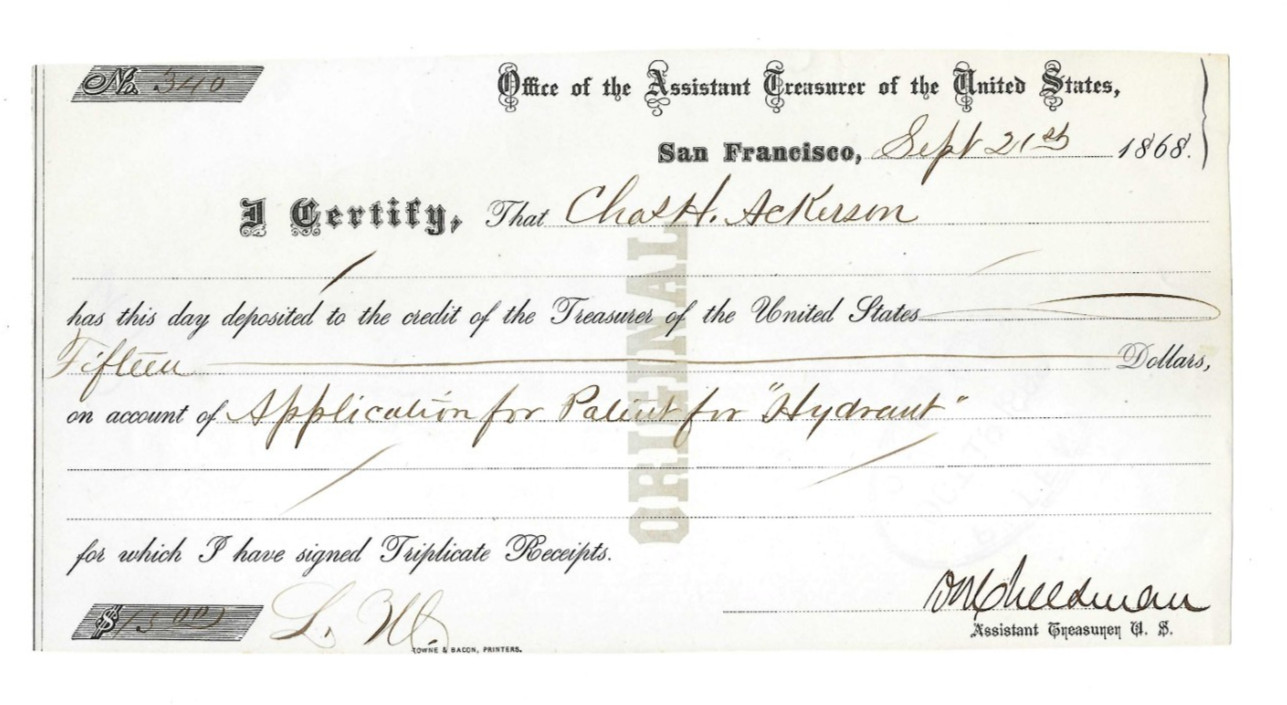 No. 340
Office of the Assistant Treasurer of the United States,
San Francisco, Sept 21st 1868.
I Certify, That Chas H. Ackerson
has this day deposited to the credit of the Treasurer of the United States
Fifteen Dollars,
on account of Application for Patent for "Hydrant"
for which I have signed Triplicate Receipts.
ORIGINAL
$15.00 L. M.
Assistant Treasurer U. S.
TOWNE & BACON, PRINTERS.